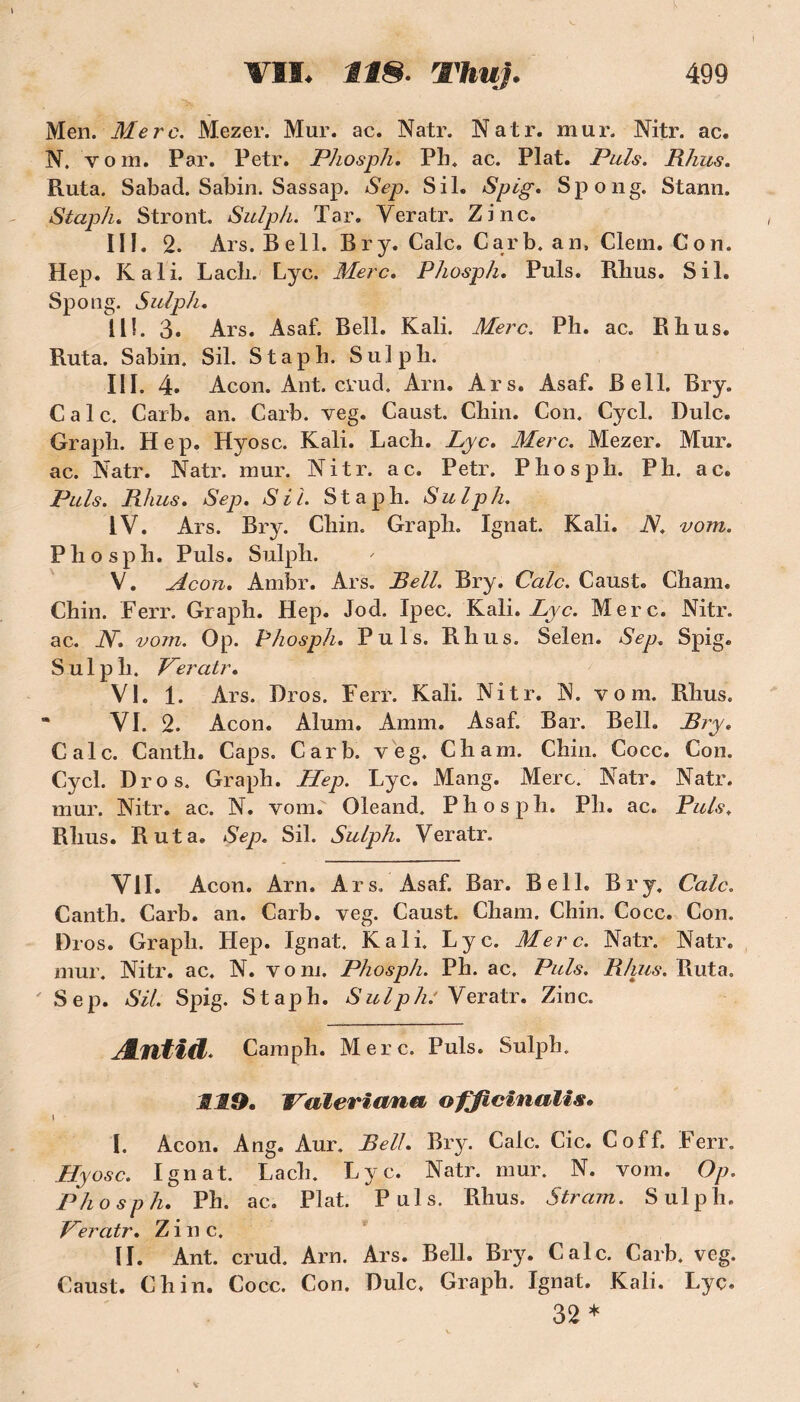 VII. 118. Thuj. 499
Men. Merc. Mezer. Mur. ac. Natr. Natr. mur. Nitr. ac.
N. vom. Par. Petr. Phosph. Ph. ac. Plat. Puls. Rhus.
Ruta. Sabad. Sabin. Sassap. Sep. Sil. Spig. Spong. Stann.
Staph. Stront. Sulph. Tar. Veratr. Zinc.
III. 2. Ars. Bell. Bry. Calc. Carb. an. Clem. Con.
Hep. Kali. Lach. Lyc. Merc. Phosph. Puls. Rhus. Sil.
Spong. Sulph.
III. 3. Ars. Asaf. Bell. Kali. Merc. Ph. ac. Rhus.
Ruta. Sabin. Sil. Staph. Sulph.
III. 4. Acon. Ant. crud. Arn. Ars. Asaf. Bell. Bry.
Calc. Carb. an. Carb. veg. Caust. Chin. Con. Cycl. Dulc.
Graph. Hep. Hyosc. Kali. Lach. Lyc. Merc. Mezer. Mur.
ac. Natr. Natr. mur. Nitr. ac. Petr. Phosph. Ph. ac.
Puls. Rhus. Sep. Sil. Staph. Sulph.
IV. Ars. Bry. Chin. Graph. Ignat. Kali. N. vom.
Phosph. Puls. Sulph.
V. Acon. Ambr. Ars. Bell. Bry. Calc. Caust. Cham.
Chin. Ferr. Graph. Hep. Jod. Ipec. Kali. Lyc. Merc. Nitr.
ac. N. vom. Op. Phosph. Puls. Rhus. Selen. Sep. Spig.
Sulph. Veratr.
VI. 1. Ars. Dros. Ferr. Kali. Nitr. N. vom. Rhus.
VI. 2. Acon. Alum. Amm. Asaf. Bar. Bell. Bry.
Calc. Canth. Caps. Carb. veg. Cham. Chin. Cocc. Con.
Cycl. Dros. Graph. Hep. Lyc. Mang. Merc. Natr. Natr.
mur. Nitr. ac. N. vom. Oleand. Phosph. Ph. ac. Puls.
Rhus. Ruta. Sep. Sil. Sulph. Veratr.
VII. Acon. Arn. Ars. Asaf. Bar. Bell. Bry. Calc.
Canth. Carb. an. Carb. veg. Caust. Cham. Chin. Cocc. Con.
Dros. Graph. Hep. Ignat. Kali. Lyc. Merc. Natr. Natr.
mur. Nitr. ac. N. vom. Phosph. Ph. ac. Puls. Rhus. Ruta.
Sep. Sil. Spig. Staph. Sulph. Veratr. Zinc.
Antid. Camph. Merc. Puls. Sulph.
119. Valeriana officinalis.
I. Acon. Ang. Aur. Bell. Bry. Calc. Cic. Coff. Ferr.
Hyosc. Ignat. Lach. Lyc. Natr. mur. N. vom. Op.
Phosph. Ph. ac. Plat. Puls. Rhus. Stram. Sulph.
Veratr. Zinc.
II. Ant. crud. Arn. Ars. Bell. Bry. Calc. Carb. veg.
Caust. Chin. Cocc. Con. Dulc. Graph. Ignat. Kali. Lyc.
32 *